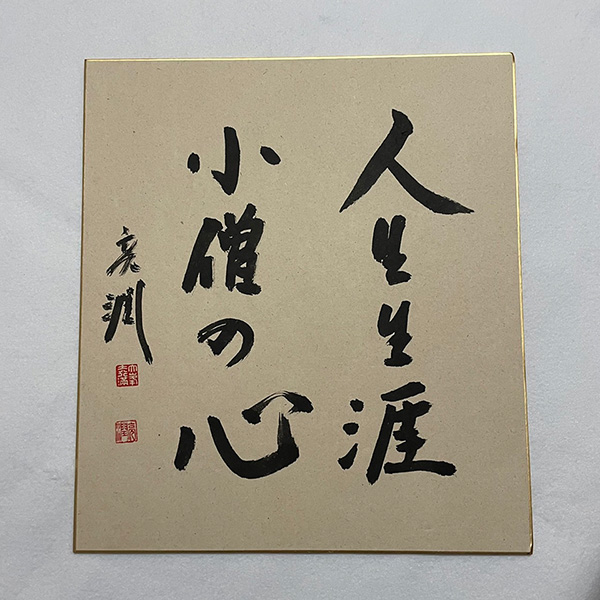 人生生涯
小僧の心
亮潤